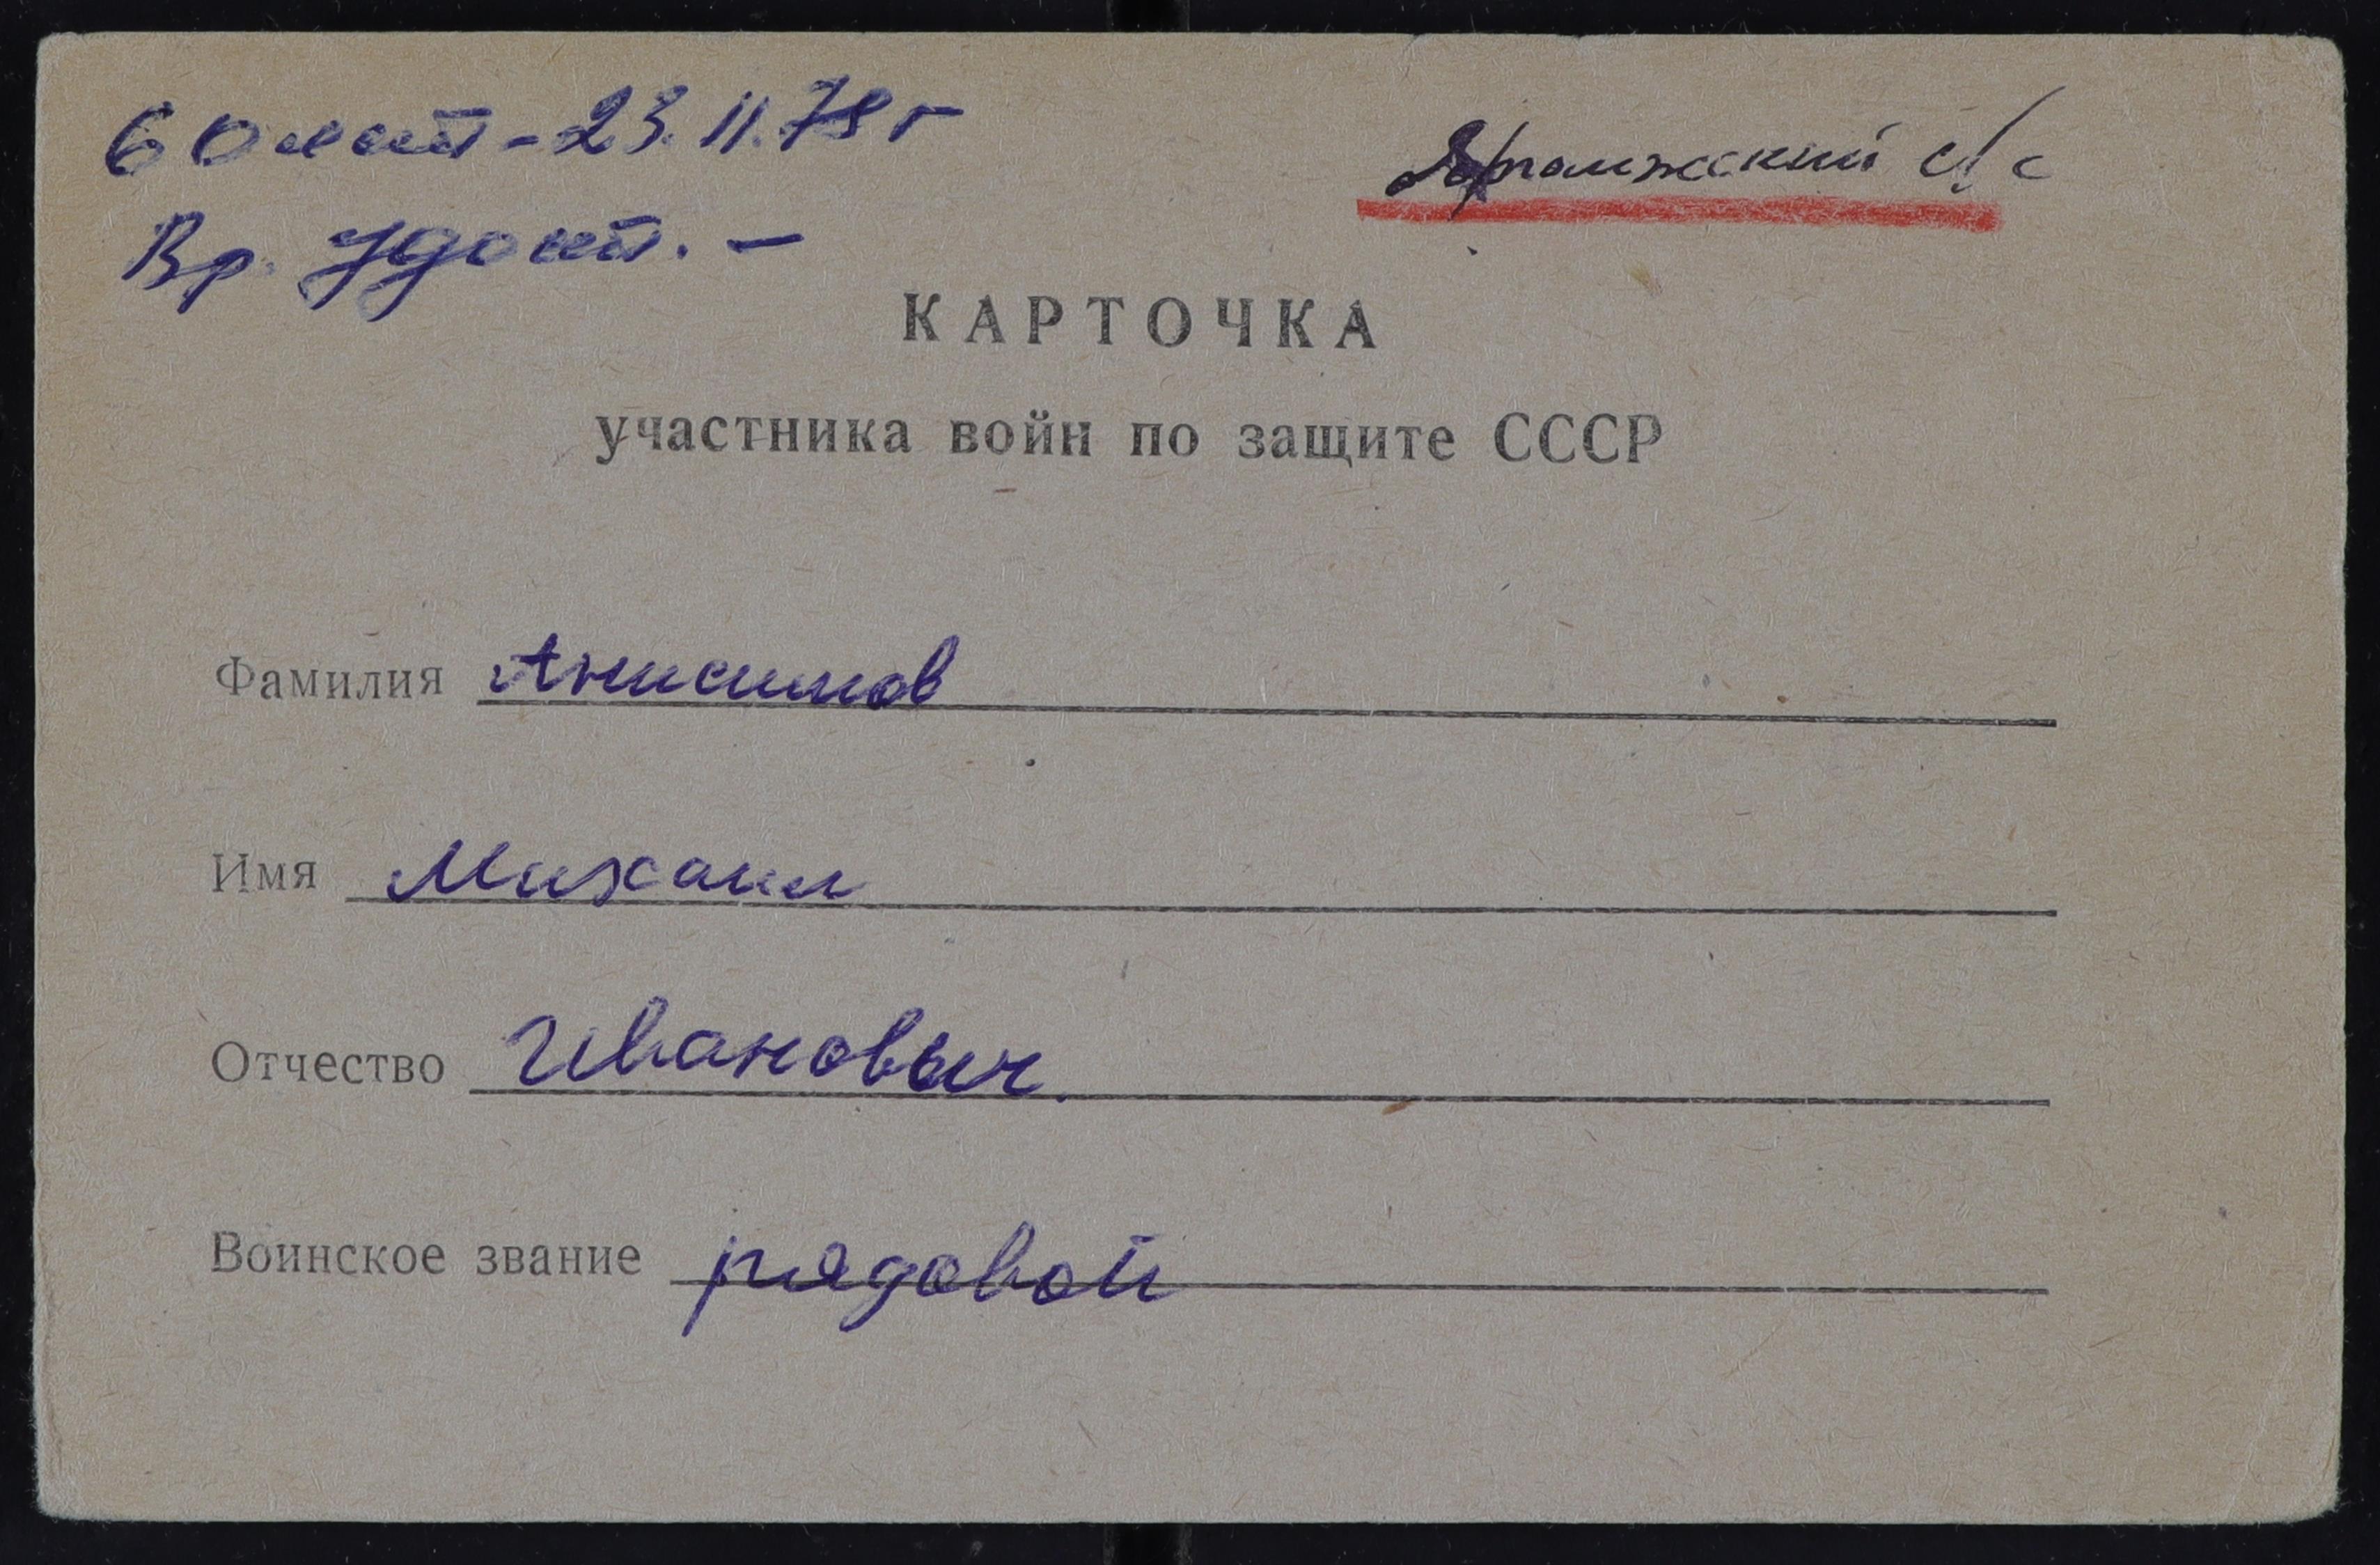 60 лет - 23.11.78 г
Вр. удост. -
с/с
КАРТОЧКА
участника войн по защите СССР
Фамилия Анисимов
Имя Михаил
Отчество Иванович.
Воинское звание рядовой